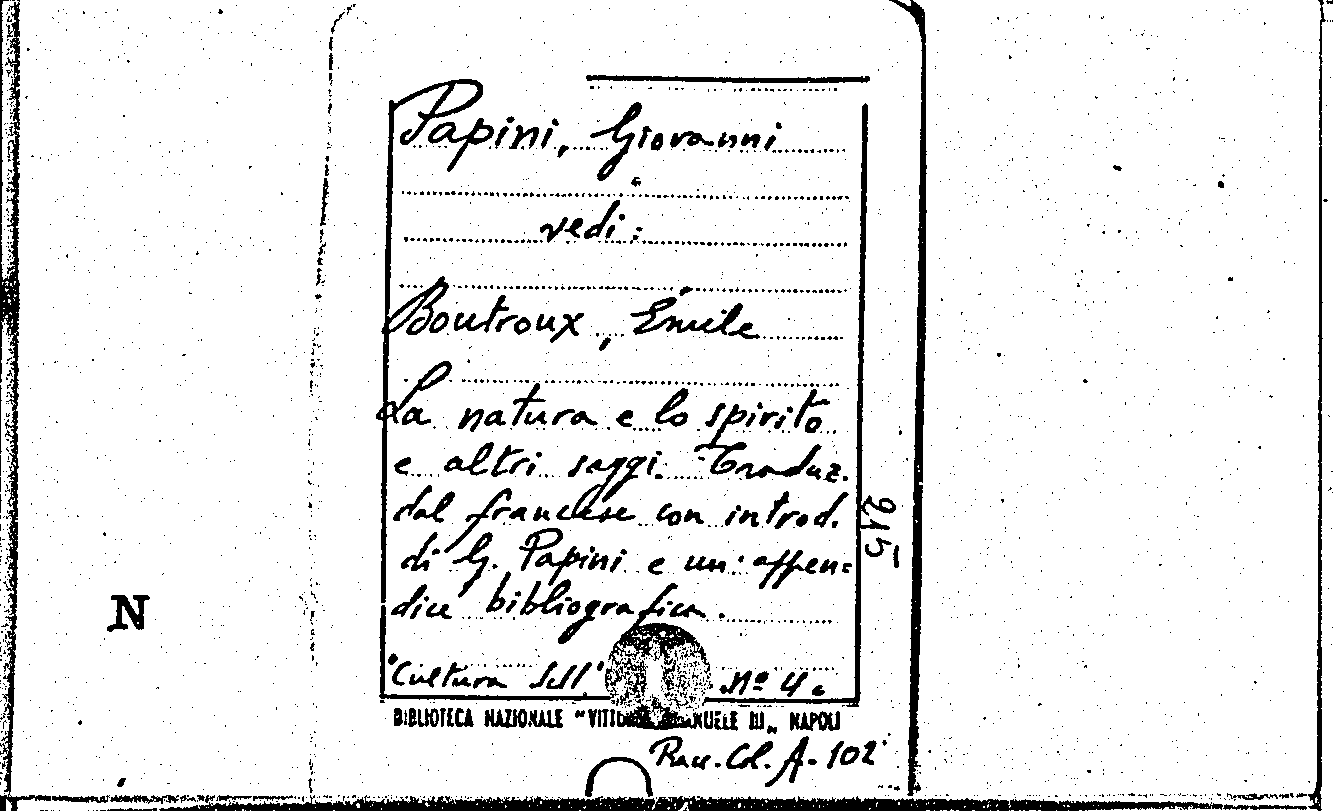 Papini, Giovanni
vedi:
Boutroux, Émile
La natura e lo spirito
e altri saggi. Traduz.
dal francese con introd.
di G. Papini e un'appen=
dice bibliografica.
"Cultura dell' Nº 4.
BIBLIOTECA NAZIONALE "VITTORIO EMANUELE III„ NAPOLI
Racc. Col. A-102
215
N